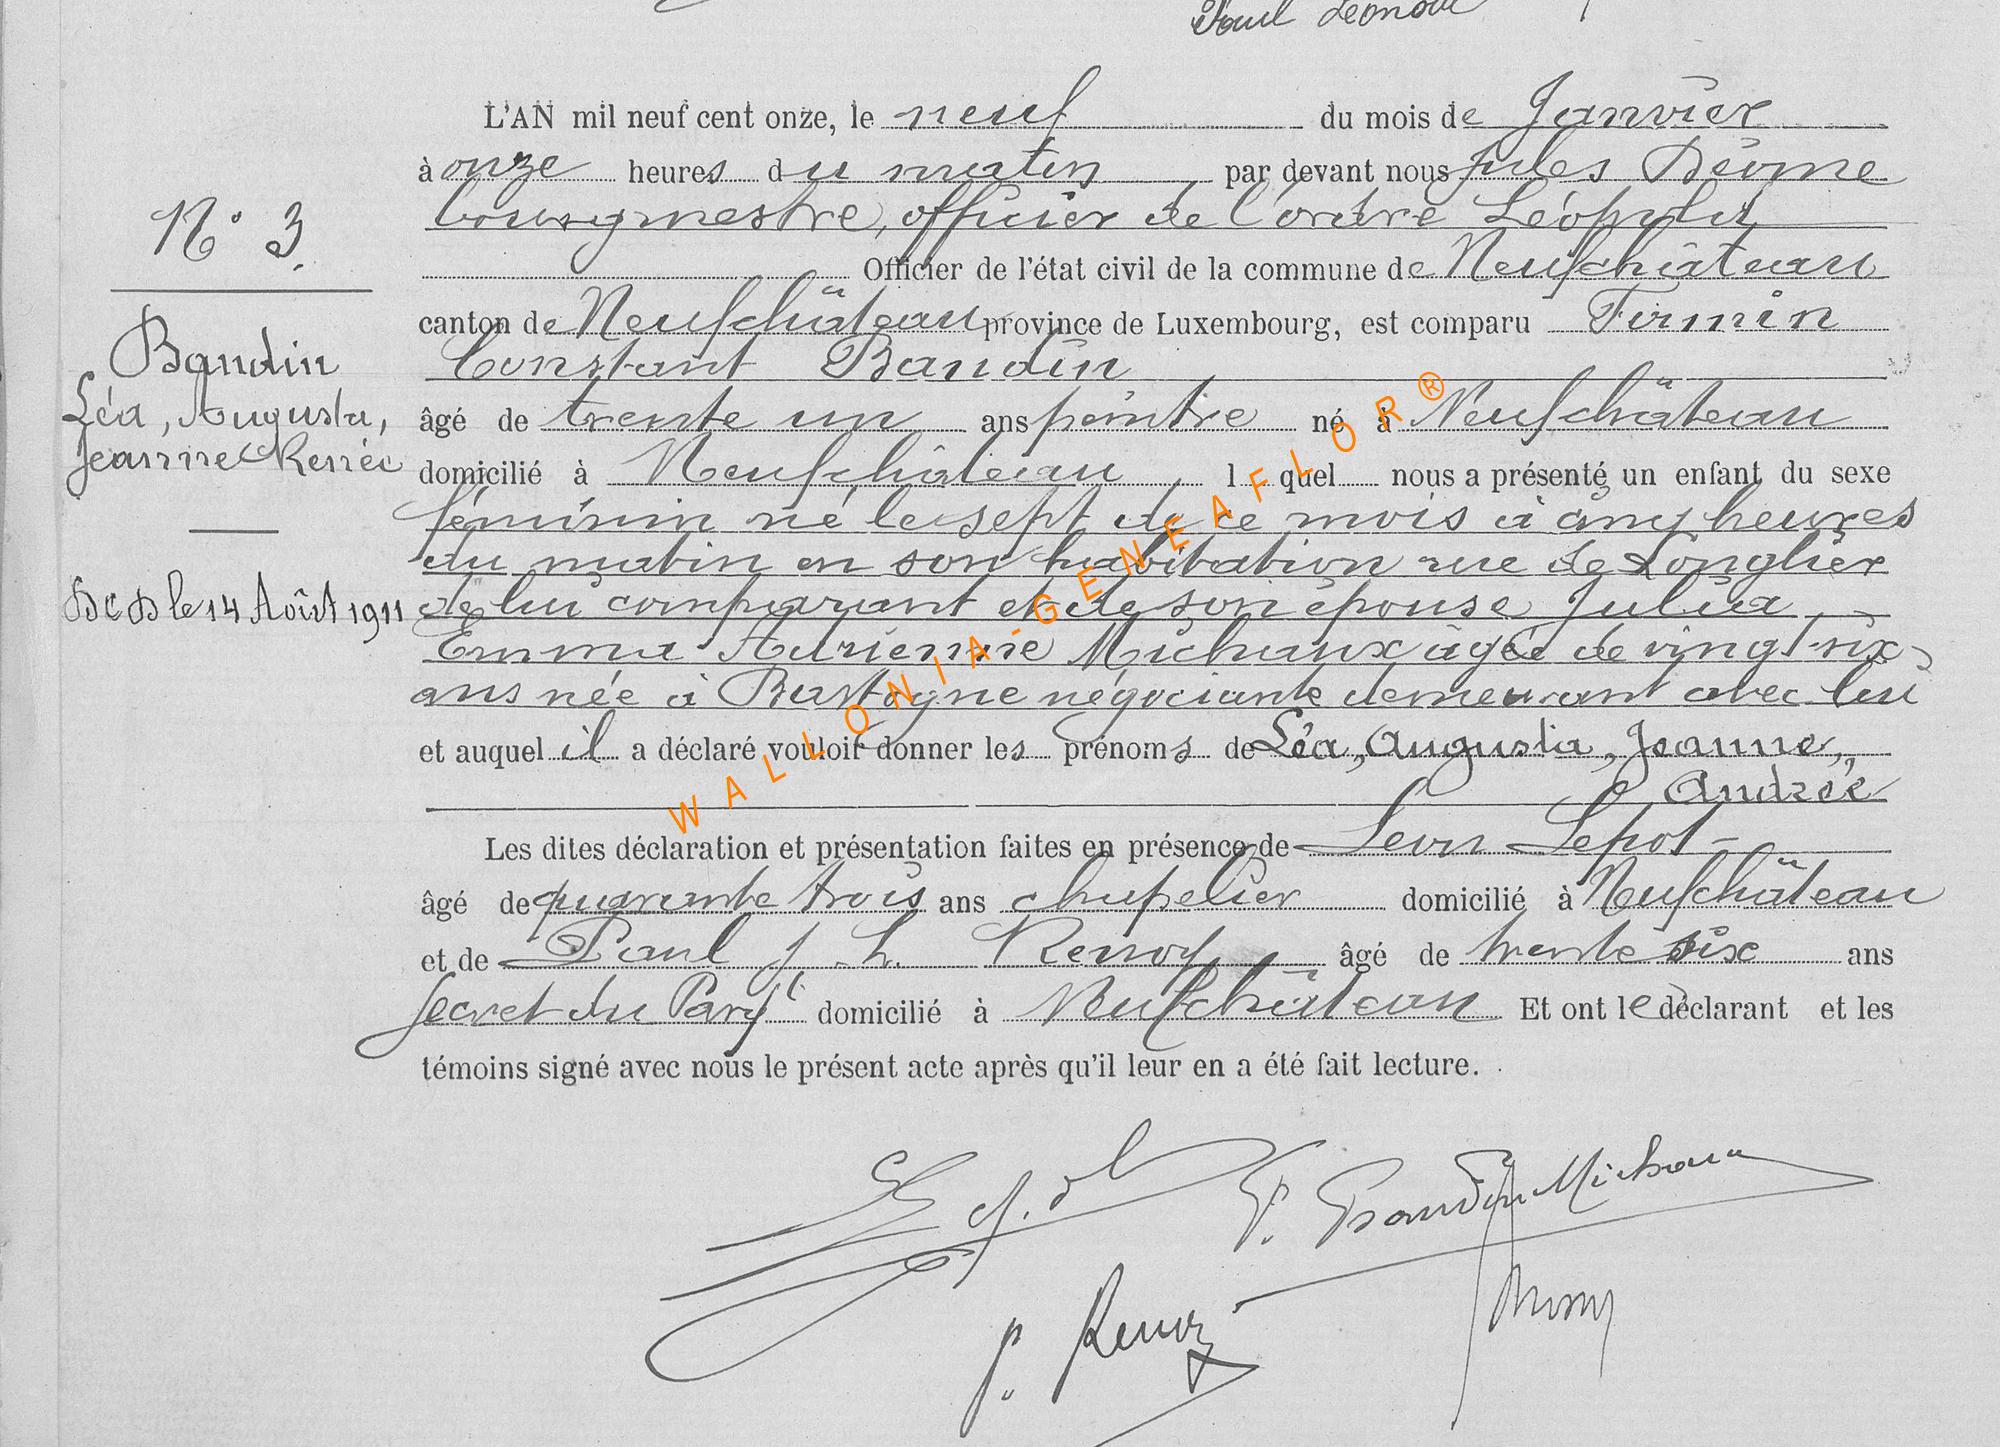 Paul Léonard
L'AN mil neuf cent onze, le neuf du mois de Janvier
à onze heures du matin par devant nous Jules Déome
bourgmestre, officier de l'ordre Léopold
Officier de l'état civil de la commune de Neufchâteau
canton de Neufchâteau province de Luxembourg, est comparu Firmin
Constant Baudin
âgé de trente un ans peintre né à Neufchâteau
domicilié à Neufchâteau l quel nous a présenté un enfant du sexe
féminin né le sept de ce mois à cinq heures
du matin en son habitation rue de Longlier
de lui comparant et de son épouse Julia
Emma Adrienne Michaux âgée de vingt-six
ans née à Bastogne négociante demeurant avec lui
et auquel il a déclaré vouloir donner les prénoms de Léa, Augusta, Jeanne,
Andrée
Les dites déclaration et présentation faites en présence de Léon Lepot
âgé de quarante trois ans chapelier domicilié à Neufchâteau
et de Paul J. H. Renoy âgé de trente six ans
secret du Parqt domicilié à Neufchâteau Et ont le déclarant et les
témoins signé avec nous le présent acte après qu'il leur en a été fait lecture.
N° 3
Baudin
Léa, Augusta,
Jeanne Renée
DCD le 14 Août 1911
F. Baudin Michaux
P. Renoy
WALLONIA-GENEAFLOR®